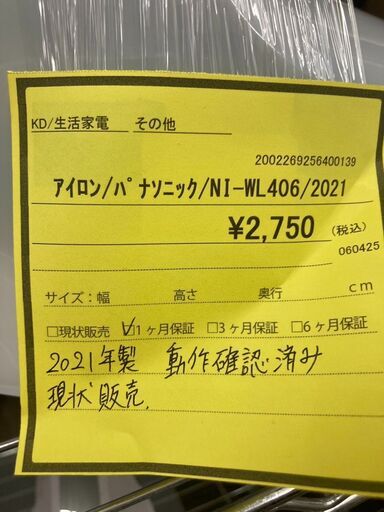 KD/生活家電 その他
2002269256400139
アイロン/パナソニック/NI-WL406/2021
¥2,750 (税込)
060425
サイズ:幅 高さ 奥行 cm
□現状販売 ☑1ヶ月保証 □3ヶ月保証 □6ヶ月保証
2021年製 動作確認済み
現状販売.